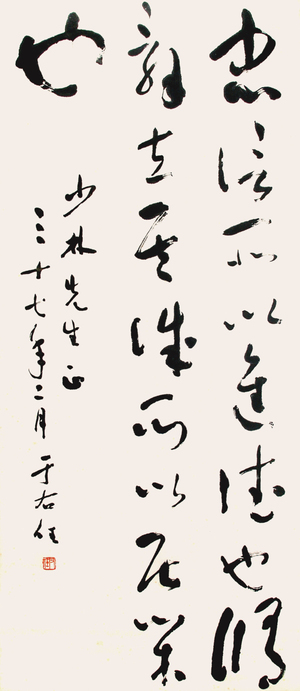 忠信所以進德也修
辭立其誠所以居業
也
少林先生正
三十七年二月 于右任